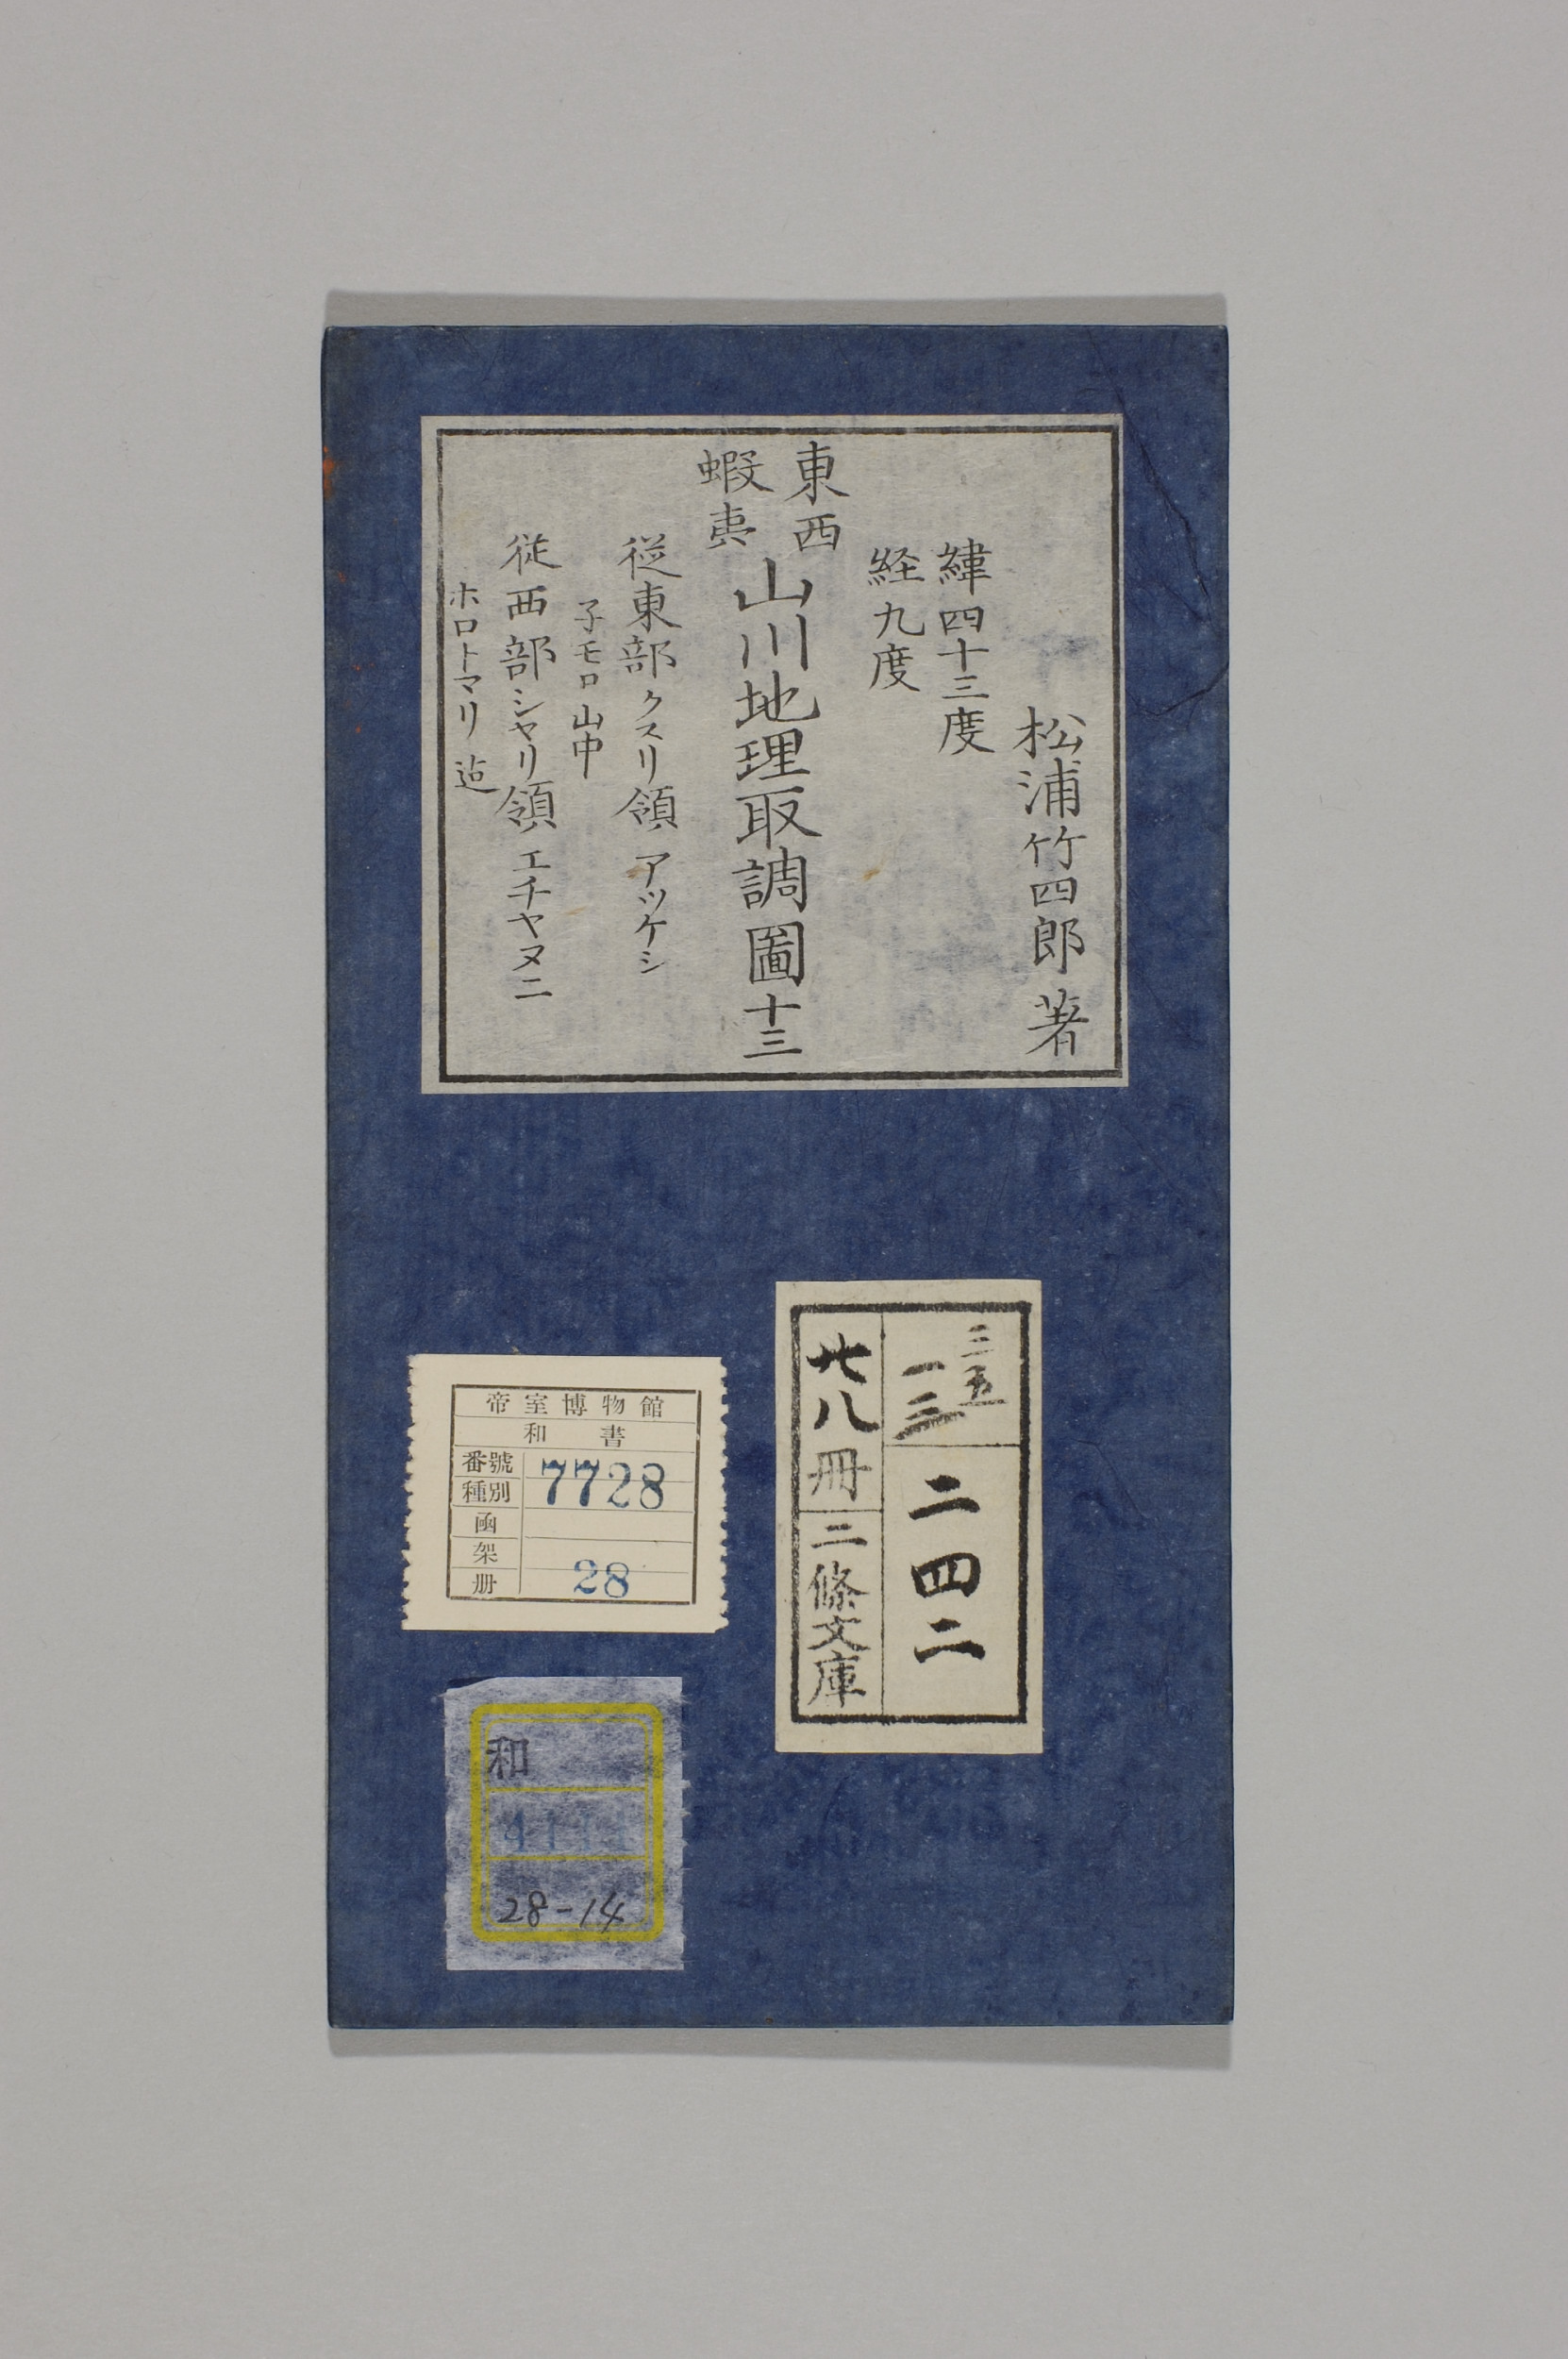 松浦竹四郎著
緯四十三度
経九度
東西
蝦夷
山川地理取調圖十三
従東部クスリ領アツケシ
子モロ山中
従西部シヤリ領エチヤヌニ
ホロトマリ迠
三五
一三
二四二
廿八冊
三條文庫
帝室博物館
和書
番號 7728
種別
函
架
册 28
和
28-14